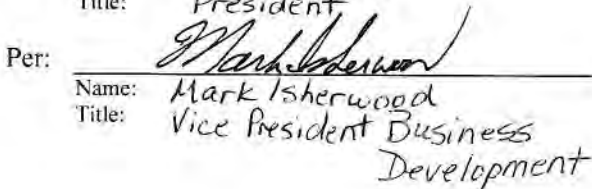 Title: President
Per: Mark Isherwood
Name: Mark Isherwood
Title: Vice President Business
Development